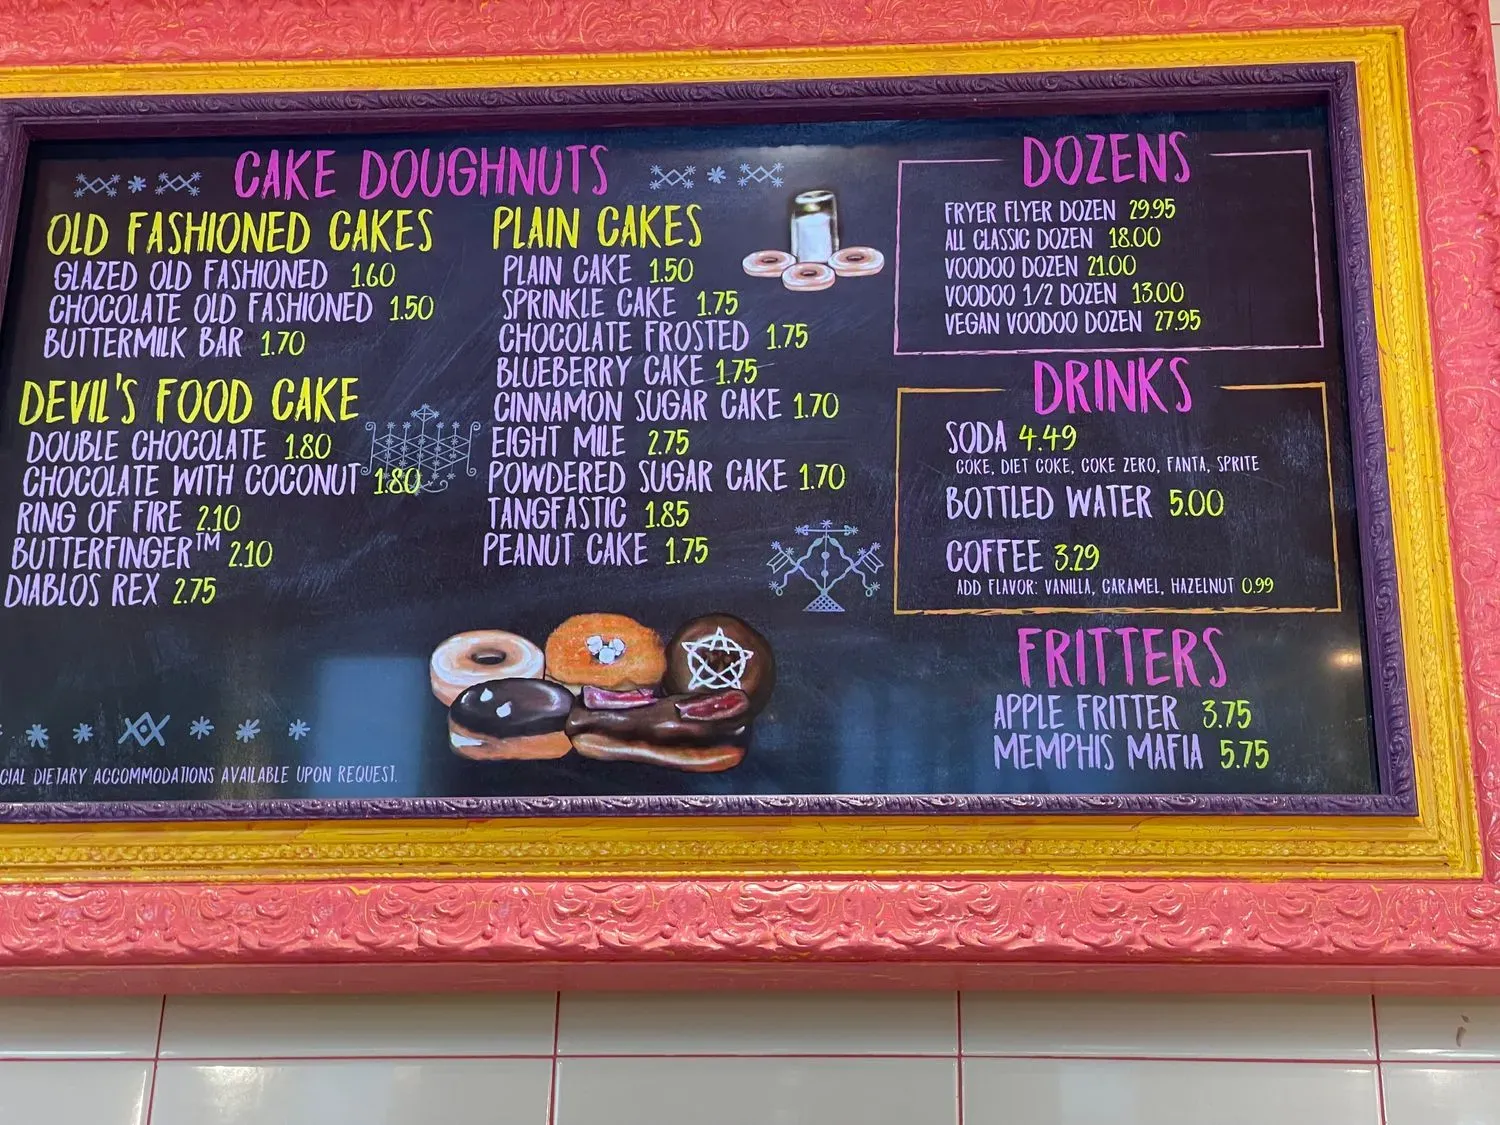 CAKE DOUGHNUTS
OLD FASHIONED CAKES
GLAZED OLD FASHIONED 1.60
CHOCOLATE OLD FASHIONED 1.50
BUTTERMILK BAR 1.70
DEVIL'S FOOD CAKE
DOUBLE CHOCOLATE 1.80
CHOCOLATE WITH COCONUT 1.80
RING OF FIRE 2.10
BUTTERFINGER™ 2.10
DIABLOS REX 2.75
DIETARY ACCOMMODATIONS AVAILABLE UPON REQUEST.
PLAIN CAKES
PLAIN CAKE 1.50
SPRINKLE CAKE 1.75
CHOCOLATE FROSTED 1.75
BLUEBERRY CAKE 1.75
CINNAMON SUGAR CAKE 1.70
EIGHT MILE 2.75
POWDERED SUGAR CAKE 1.70
TANGFASTIC 1.85
PEANUT CAKE 1.75
DOZENS
FRYER FLYER DOZEN 29.95
ALL CLASSIC DOZEN 18.00
VOODOO DOZEN 21.00
VOODOO 1/2 DOZEN 13.00
VEGAN VOODOO DOZEN 27.95
DRINKS
SODA 4.49
COKE, DIET COKE, COKE ZERO, FANTA, SPRITE
BOTTLED WATER 5.00
COFFEE 3.29
ADD FLAVOR: VANILLA, CARAMEL, HAZELNUT 0.99
FRITTERS
APPLE FRITTER 3.75
MEMPHIS MAFIA 5.75